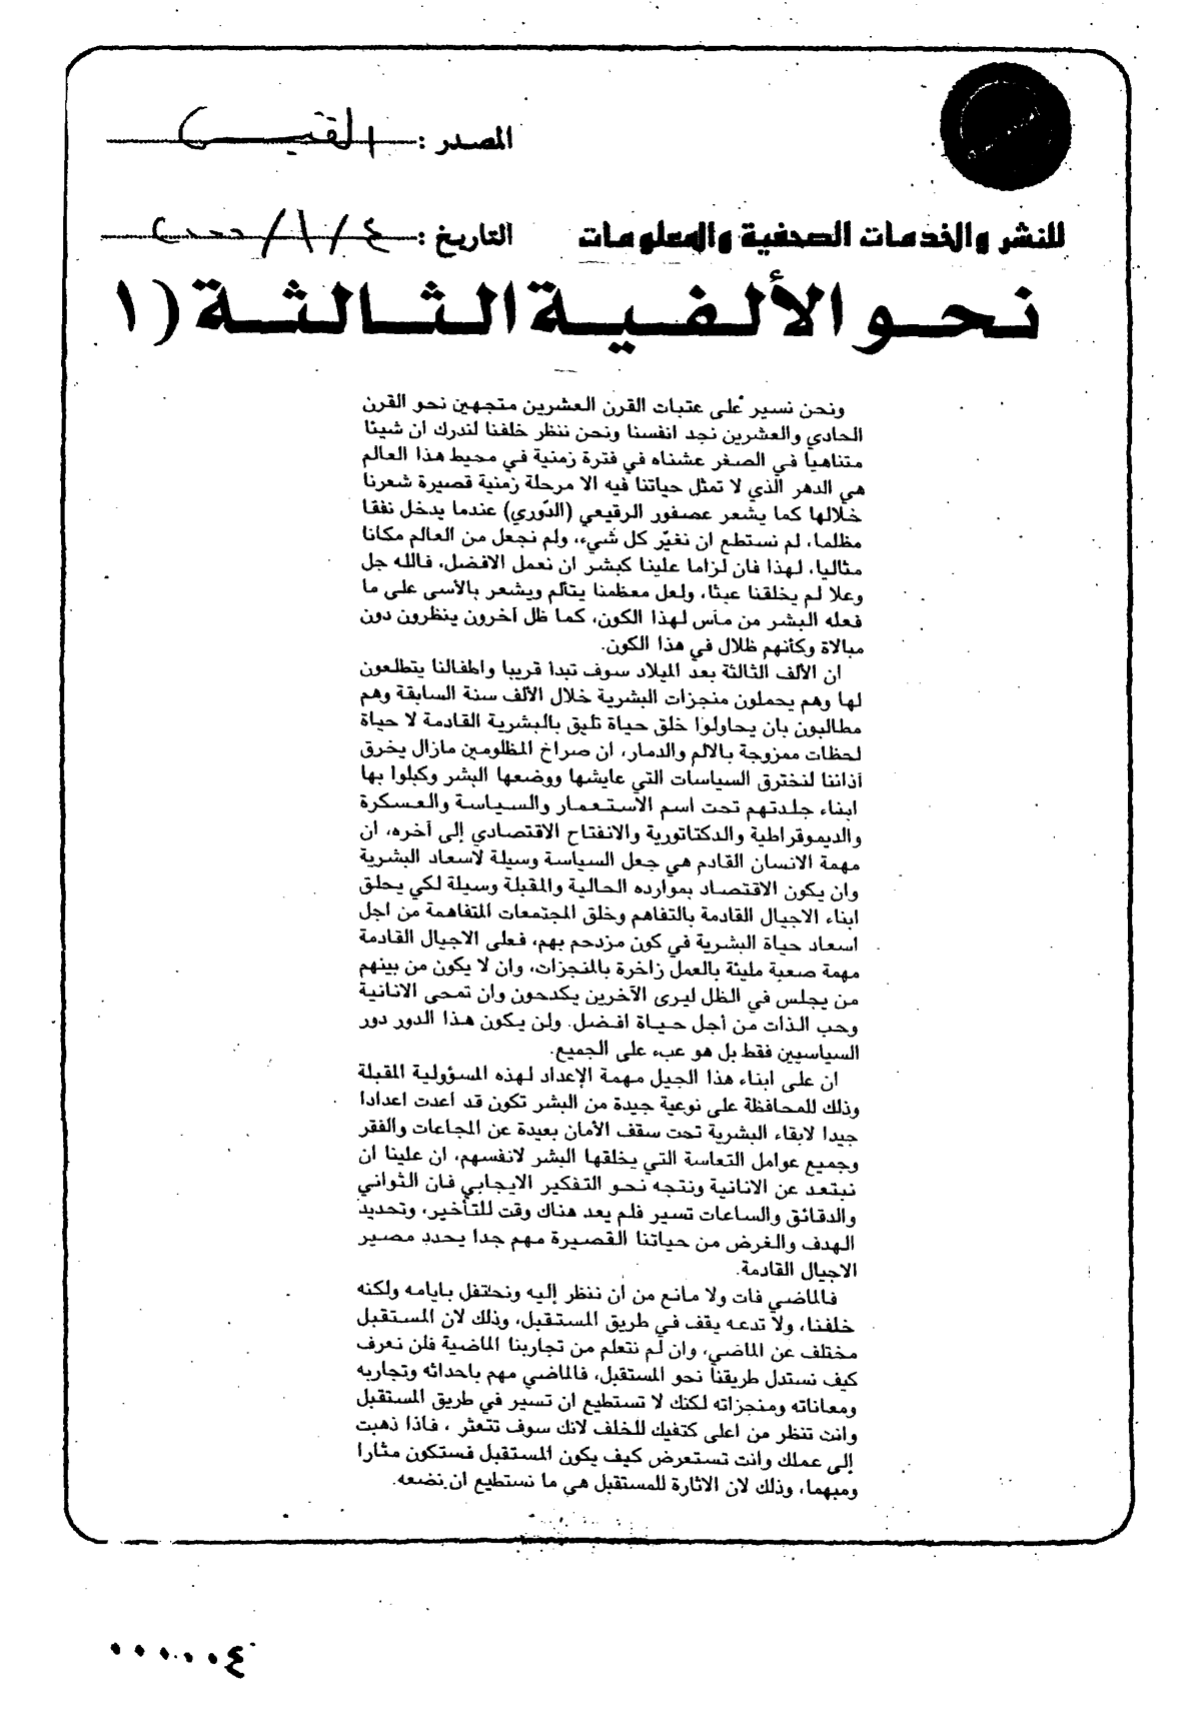 المصدر : القبس
للنشر والخدمات الصحفية والمعلومات
التاريخ : ٤/١/٢٠٠٠
نحو الألفية الثالثة (١
ونحن نسير على عتبات القرن العشرين متجهين نحو القرن
الحادي والعشرين نجد انفسنا ونحن ننظر خلفنا لندرك ان شيئا
متناهيا في الصغر عشناه في فترة زمنية في محيط هذا العالم
هي الدهر الذي لا تمثل حياتنا فيه الا مرحلة زمنية قصيرة شعرنا
خلالها كما يشعر عصفور الرقيعي (الدّوري) عندما يدخل نفقا
مظلما، لم نستطع ان نغيّر كل شيء، ولم نجعل من العالم مكانا
مثاليا، لهذا فان لزاما علينا كبشر ان نعمل الافضل، فالله جل
وعلا لم يخلقنا عبثا، ولعل معظمنا يتألم ويشعر بالأسى على ما
فعله البشر من مآس لهذا الكون، كما ظل آخرون ينظرون دون
مبالاة وكأنهم ظلال في هذا الكون.
ان الألف الثالثة بعد الميلاد سوف تبدأ قريبا واطفالنا يتطلعون
لها وهم يحملون منجزات البشرية خلال الألف سنة السابقة وهم
مطالبون بان يحاولوا خلق حياة تليق بالبشرية القادمة لا حياة
لحظات ممزوجة بالالم والدمار، ان صراخ المظلومين مازال يخرق
آذاننا لنخترق السياسات التي عايشها ووضعها البشر وكبلوا بها
ابناء جلدتهم تحت اسم الاستعمار والسياسة والعسكرة
والديموقراطية والدكتاتورية والانفتاح الاقتصادي إلى آخره، ان
مهمة الانسان القادم هي جعل السياسة وسيلة لاسعاد البشرية
وان يكون الاقتصاد بموارده الحالية والمقبلة وسيلة لكي يحلق
ابناء الاجيال القادمة بالتفاهم وخلق المجتمعات المتفاهمة من اجل
اسعاد حياة البشرية في كون مزدحم بهم، فعلى الاجيال القادمة
مهمة صعبة مليئة بالعمل زاخرة بالمنجزات، وان لا يكون من بينهم
من يجلس في الظل ليرى الآخرين يكدحون وان تمحى الانانية
وحب الذات من أجل حياة افضل. ولن يكون هذا الدور دور
السياسيين فقط بل هو عبء على الجميع.
ان على ابناء هذا الجيل مهمة الإعداد لهذه المسؤولية المقبلة
وذلك للمحافظة على نوعية جيدة من البشر تكون قد اعدت اعدادا
جيدا لابقاء البشرية تحت سقف الأمان بعيدة عن المجاعات والفقر
وجميع عوامل التعاسة التي يخلقها البشر لانفسهم، ان علينا ان
نبتعد عن الانانية ونتجه نحو التفكير الايجابي فان الثواني
والدقائق والساعات تسير فلم يعد هناك وقت للتأخير، وتحديد
الهدف والغرض من حياتنا القصيرة مهم جدا يحدد مصير
الاجيال القادمة.
فالماضي فات ولا مانع من ان ننظر إليه ونحتفل بايامه ولكنه
خلفنا، ولا تدعه يقف في طريق المستقبل، وذلك لان المستقبل
مختلف عن الماضي، وان لم نتعلم من تجاربنا الماضية فلن نعرف
كيف نستدل طريقنا نحو المستقبل، فالماضي مهم باحداثه وتجاربه
ومعاناته ومنجزاته لكنك لا تستطيع ان تسير في طريق المستقبل
وانت تنظر من اعلى كتفيك للخلف لانك سوف تتعثر ، فاذا ذهبت
إلى عملك وانت تستعرض كيف يكون المستقبل فستكون مثارا
ومبهما، وذلك لان الاثارة للمستقبل هي ما نستطيع ان نضعه.
٠٠٠٠٠٤